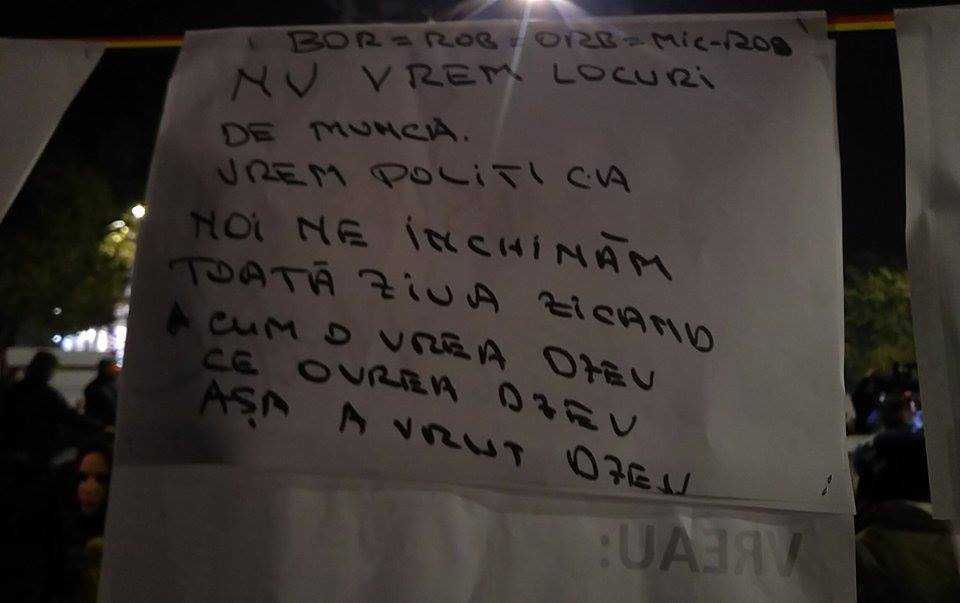 BOR = ROB = ORB = MIC-ROB
NU VREM LOCURI
DE MUNCĂ.
VREM POLITICA
NOI NE INCHINĂM
TOATĂ ZIUA ZICAND
A CUM O VREA DZEU
CE OVREA DZEU
AȘA A VRUT DZEU
VREAU: